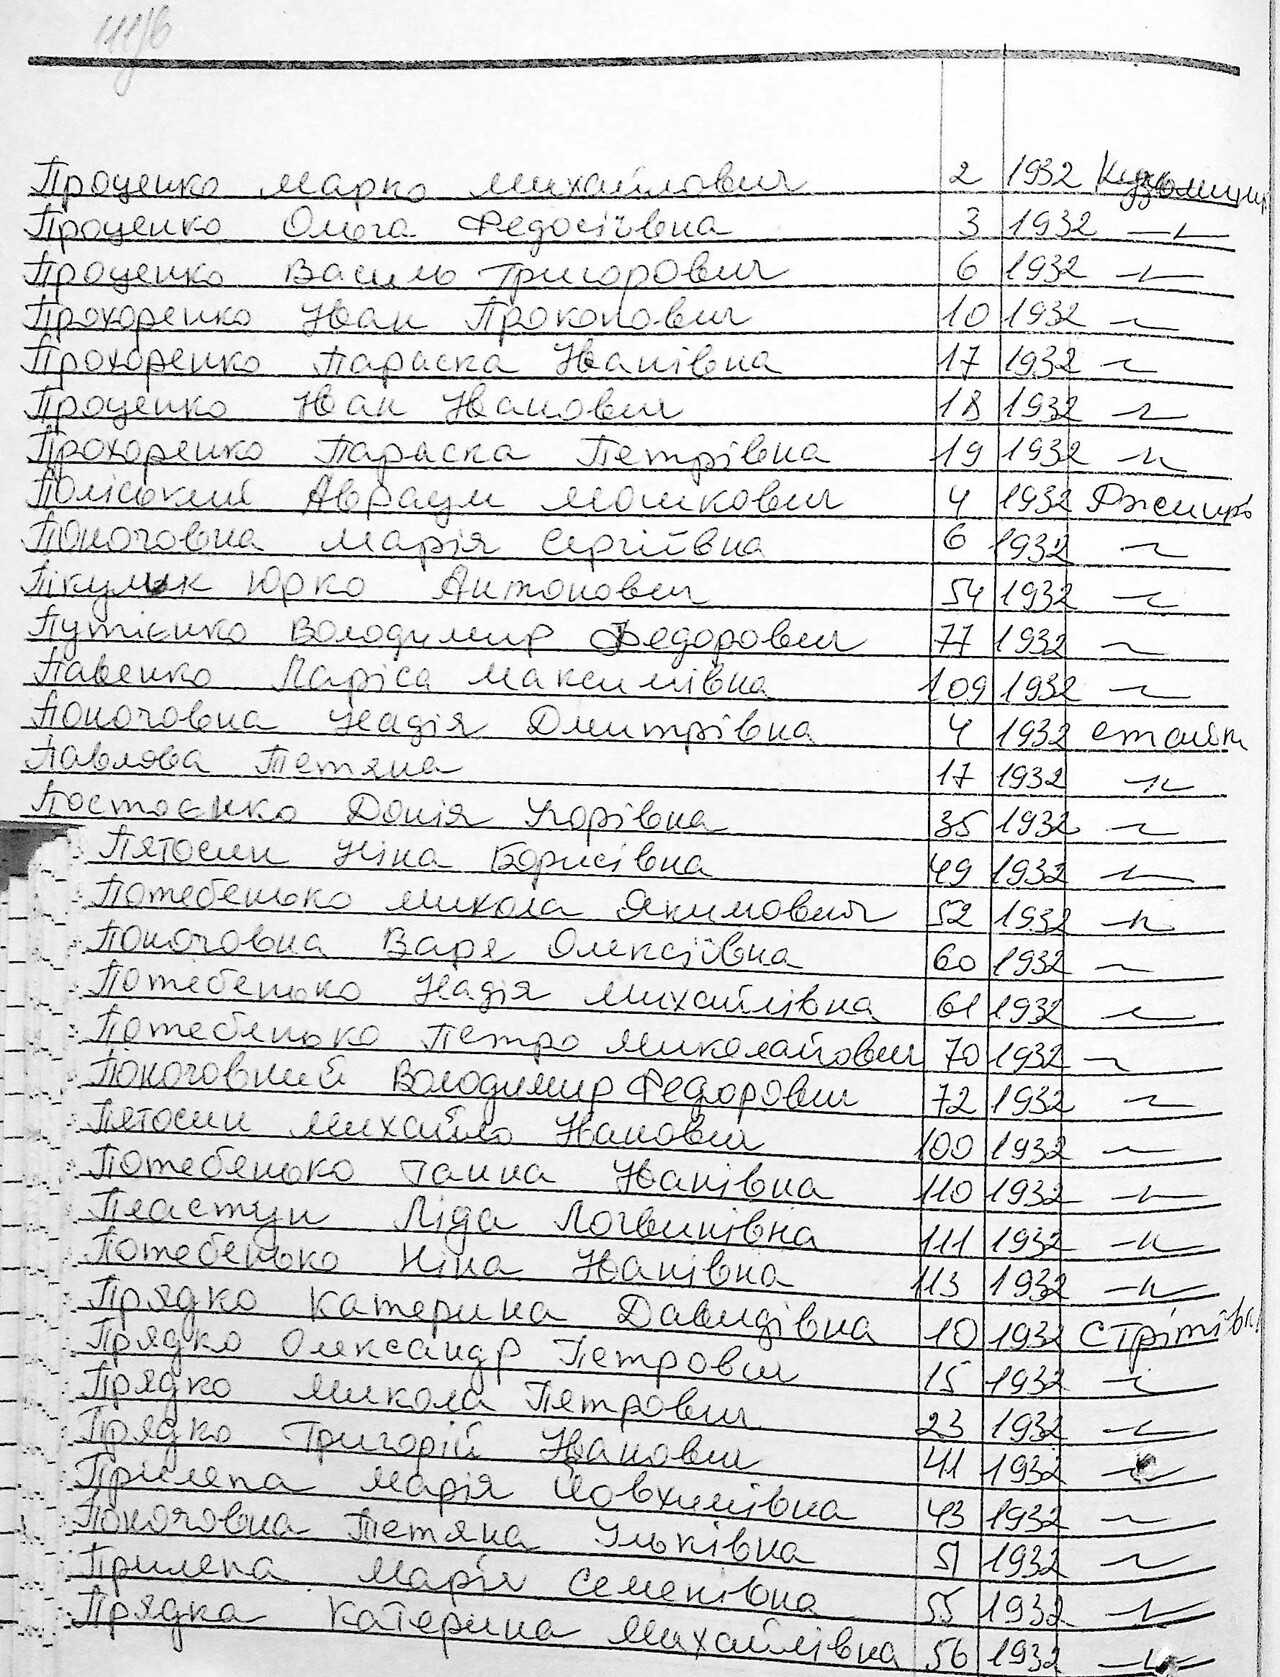 Проценко Марко Михайлович 2 1932
Проценко Ольга Федосіївна 3 1932 —"—
Проценко Василь Григорович 6 1932 —"—
Прохоренко Іван Прокопович 10 1932 —"—
Прохоренко Параска Іванівна 17 1932 —"—
Проценко Іван Іванович 18 1932 —"—
Прохоренко Параска Петрівна 19 1932 —"—
Поліський Авраум Мошкович 4 1932
Поночовна Марія Сергіївна 6 1932 —"—
Пікулик Юрко Антонович 54 1932 —"—
Путієнко Володимир Федорович 77 1932 —"—
Павенко Лариса Максимівна 109 1932 —"—
Поночовна Надія Дмитрівна 4 1932
Павлова Тетяна 17 1932 —"—
Постоєнко Донія Ігорівна 35 1932 —"—
Пятосин Ніна Борисівна 49 1932 —"—
Потебенько Микола Якимович 52 1932 —"—
Поночовна Варя Олексіївна 60 1932 —"—
Потебенько Надія Михайлівна 61 1932 —"—
Потебенько Петро Миколайович 70 1932 —"—
Поночовний Володимир Федорович 72 1932 —"—
Пятосин Михайло Іванович 100 1932 —"—
Потебенько Ганна Іванівна 110 1932 —"—
Пластун Ліда Логвинівна 111 1932 —"—
Потебенько Ніна Іванівна 113 1932 —"—
Прядко Катерина Давидівна 10 1932 Стрітівк
Прядко Олександр Петрович 15 1932 —"—
Прядко Микола Петрович 23 1932 —"—
Прядко Григорій Іванович 41 1932 —"—
Прилепа Марія Йовхимівна 43 1932 —"—
Поночовна Тетяна Ульківна 51 1932 —"—
Прилепа Марія Семенівна 55 1932 —"—
Прядка Катерина Михайлівна 56 1932 —"—